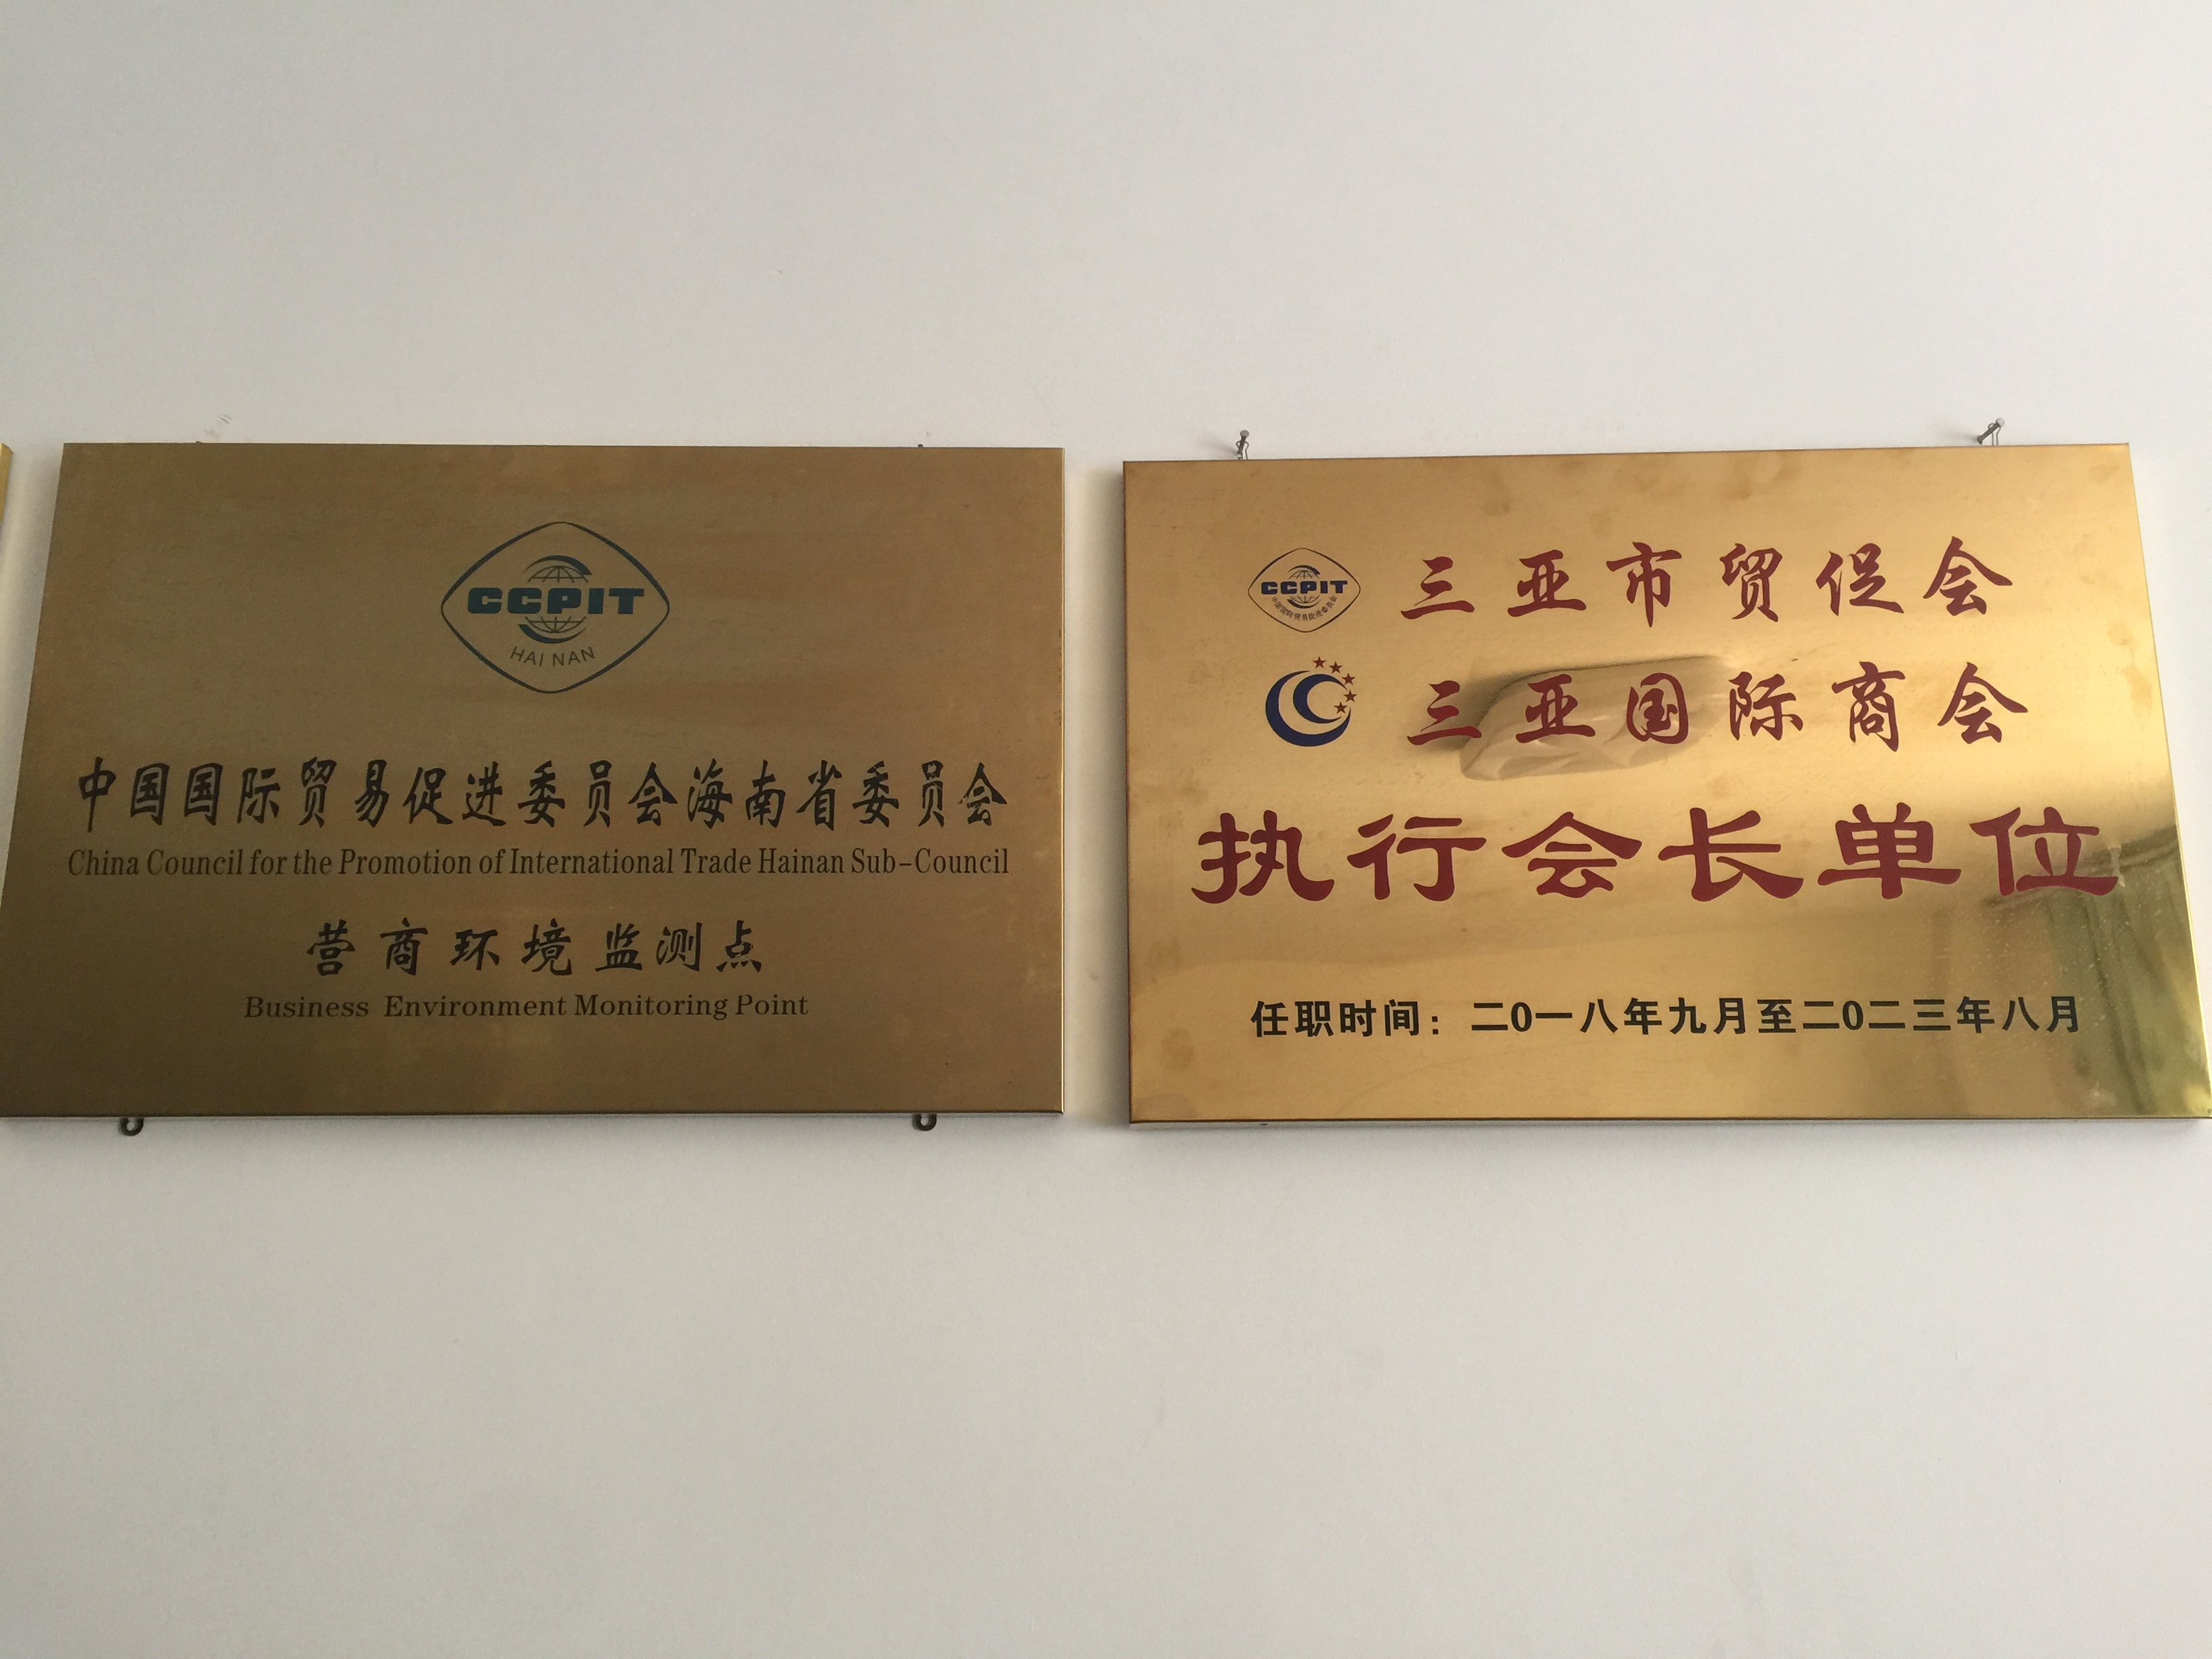 CCPIT
HAI NAN
中国国际贸易促进委员会海南省委员会
China Council for the Promotion of International Trade Hainan Sub-Council
营商环境监测点
Business Environment Monitoring Point
CCPIT
中国国际贸易促进委员会
三亚市贸促会
三亚国际商会
执行会长单位
任职时间：二0一八年九月至二0二三年八月